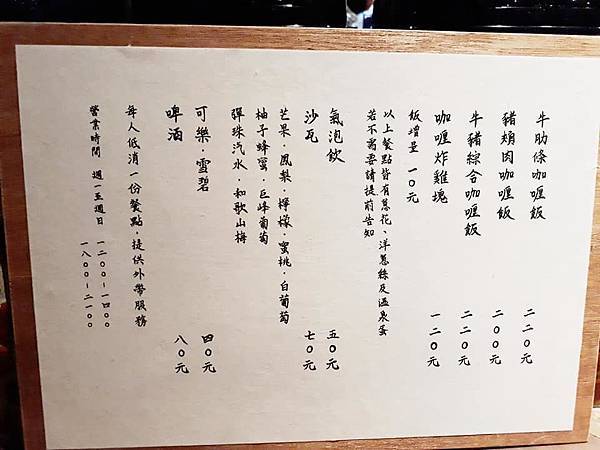 牛肋條咖喱飯 二二０元
豬頰肉咖喱飯 二００元
牛豬綜合咖喱飯 二二０元
咖喱炸雞塊 一二０元
飯增量 一０元
以上餐點皆有蔥花、洋蔥絲及溫泉蛋
若不需要請提前告知
氣泡飲 五０元
沙瓦 七０元
芒果．鳳梨．檸檬．蜜桃．白葡萄
柚子蜂蜜．巨峰葡萄
彈珠汽水．和歌山梅
可樂．雪碧 四０元
啤酒 八０元
每人低消一份餐點，提供外帶服務
營業時間 週一至週日 一二００－一四００
一八００－二一００